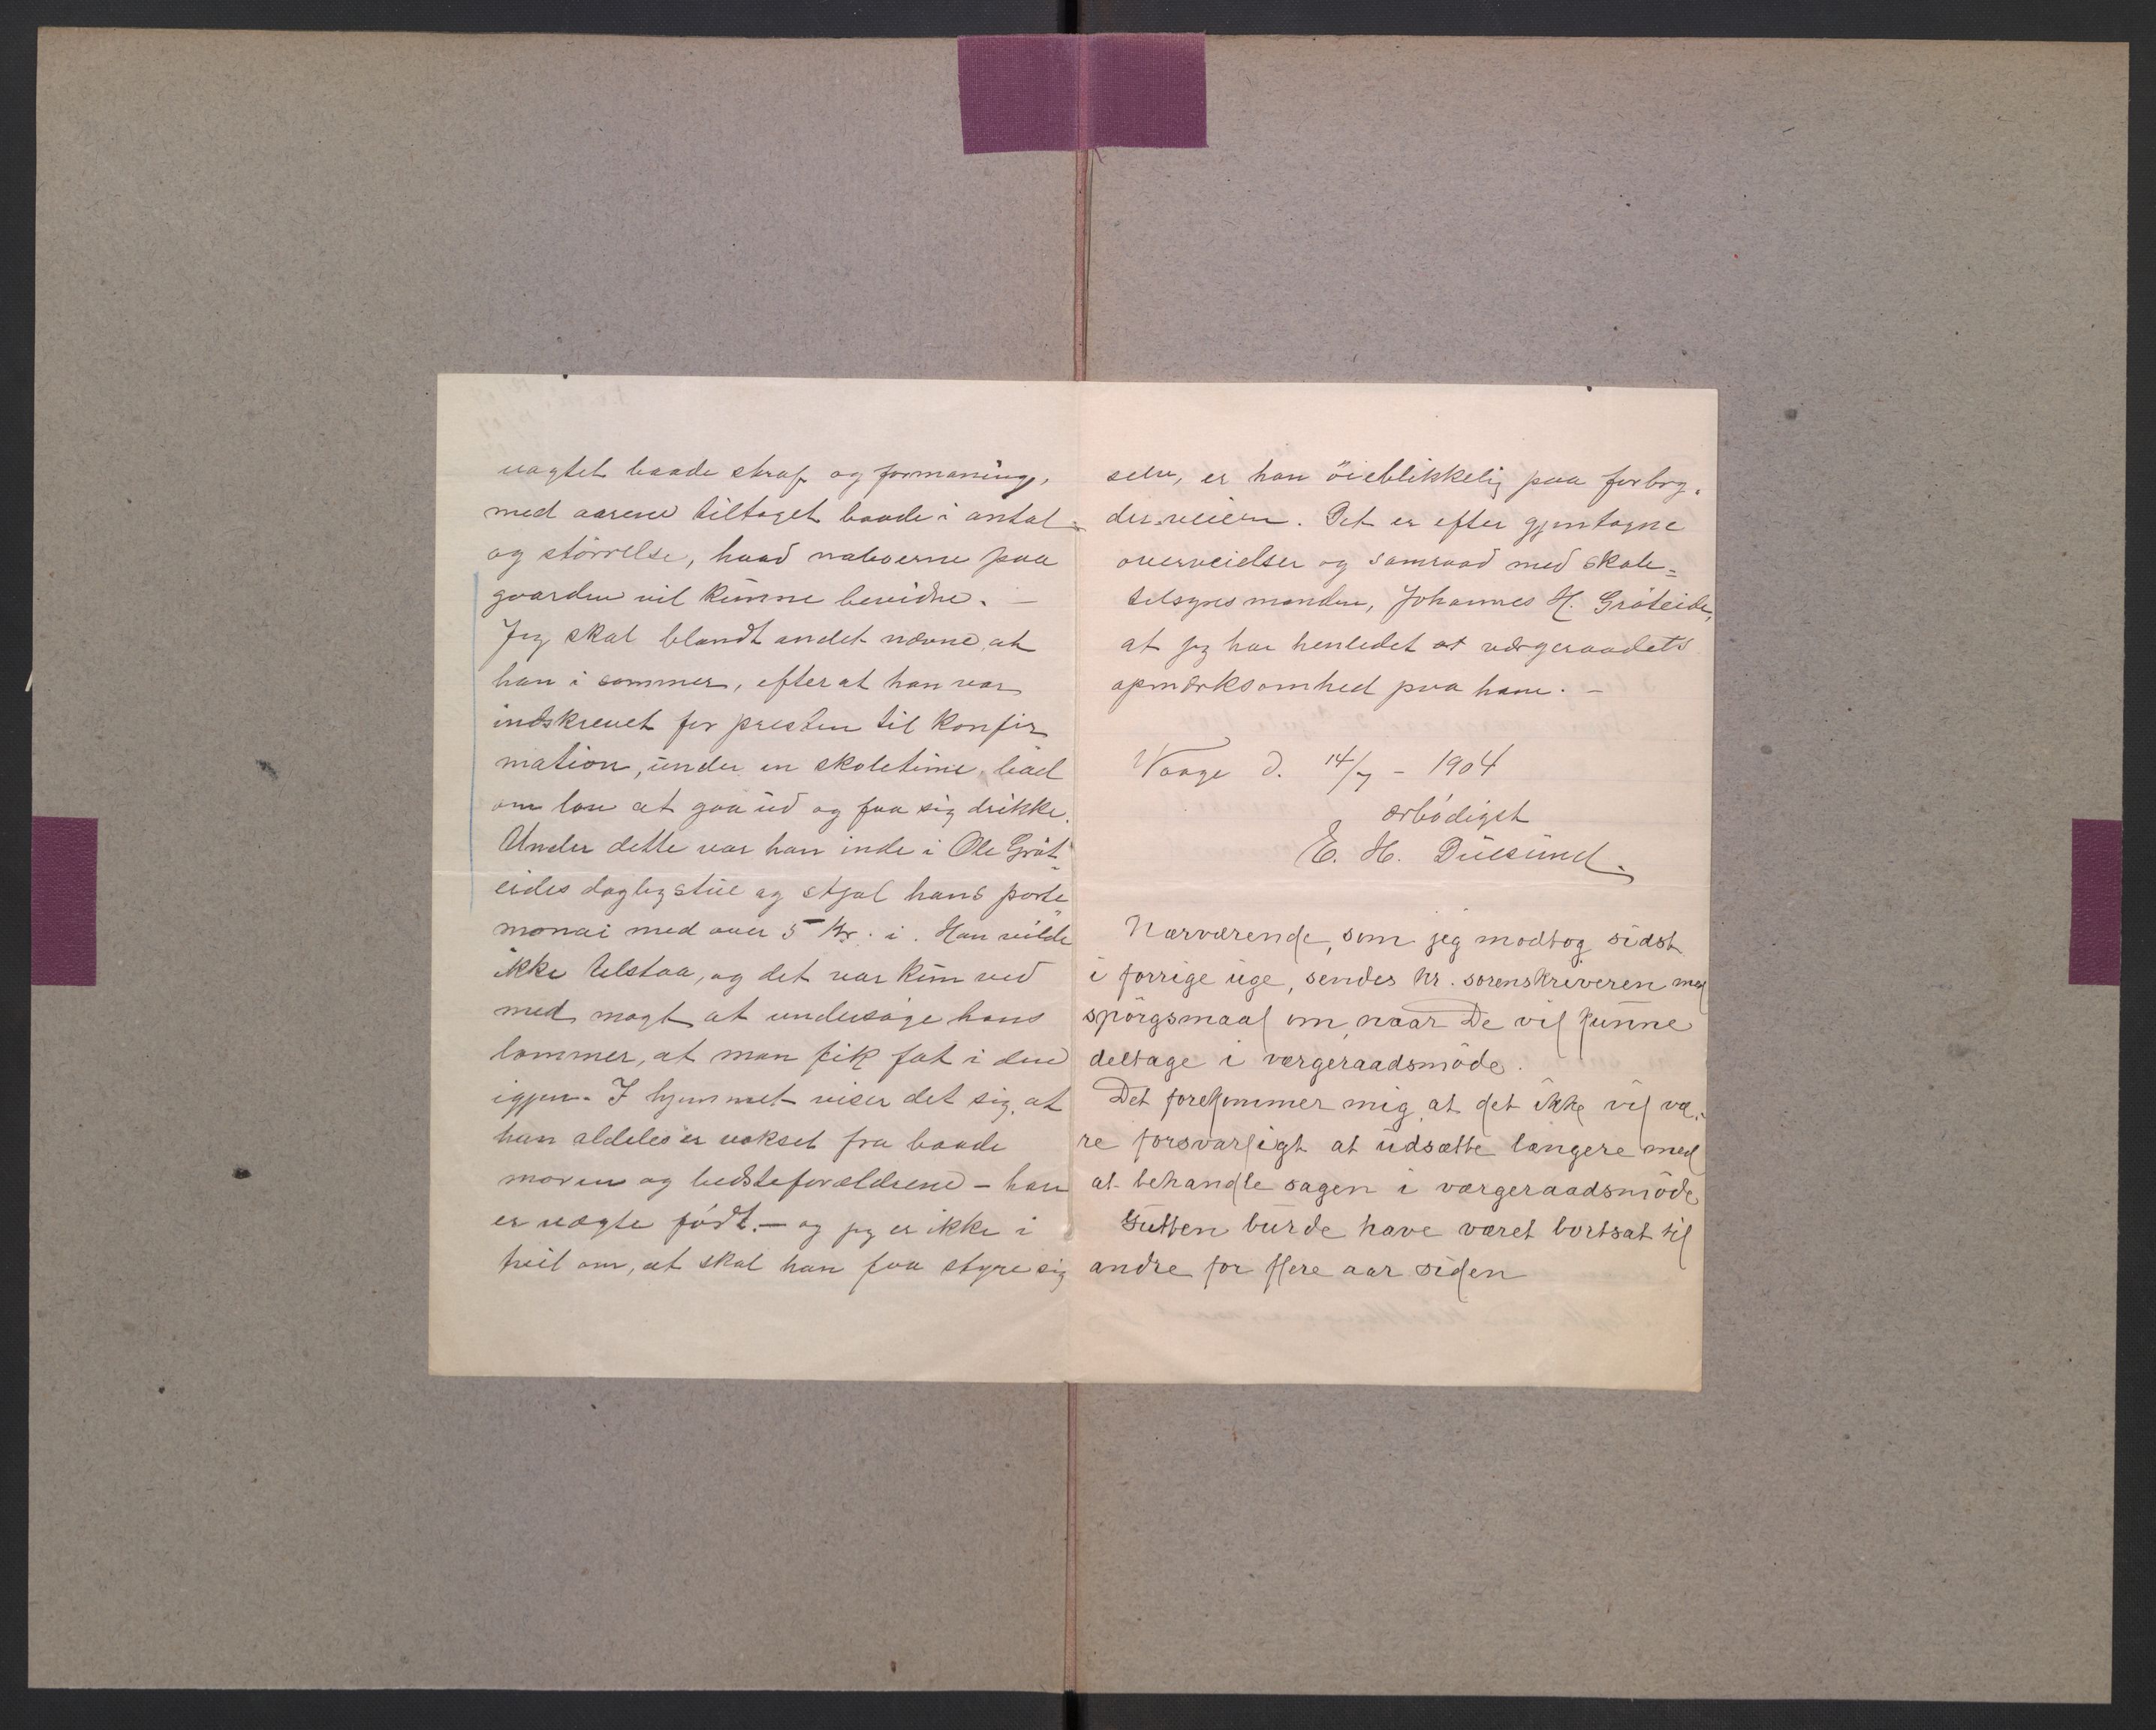 uagtet baade straf og formaning,
med aarene tiltaget baade i antal
og störrelse, hvad naboerne paa
gaarden vil kunne bevidne. –
Jeg skal blandt andet nævne, at
han i sommer, efterat han var
indskrevet for presten til konfir
mation, under en skoletime, bad
om lov at gaa ud og faa sig drikke.
Under dette var han inde i Ole Gröt-
eides daglystue og stjal hans porte
monai med over 5 kr. i. Han vilde
ikke tilstaa, og det var kun ved
med magt at undersøge hans
lommer, at man fik fat i den
igjen. I hjemmet viser det sig, at
han aldeles er vokset fra baade
moren og bedsteforældrene – han
er uægte født. – og jeg er ikke i
tvil om, at skal han faa styre sig
selv, er han öieblikkelig paa forbry-
derveien. Det er efter gjentagne
overveielser og samraad med skole=
tilsynsmanden, Johannes H. Gröteide,
at jeg har henledet at værgeraadets
opmærksomhed paa ham. –
Vaage d. 14/7 – 1904
ærbödigst
E. H. Duesund.
Nærværende, som jeg modtog sidst
i forrige uge, sendes hr. sorenskriveren med
spörgsmaal om, naar De vil kunne
deltage i værgeraadsmöde.
Det forekommer mig, at det ikke vil væ-
re forsvarligt at udsætte længere med
at behandle sagen i værgeraadsmöde
Gutten burde have været bortsat til
andre for flere aar siden